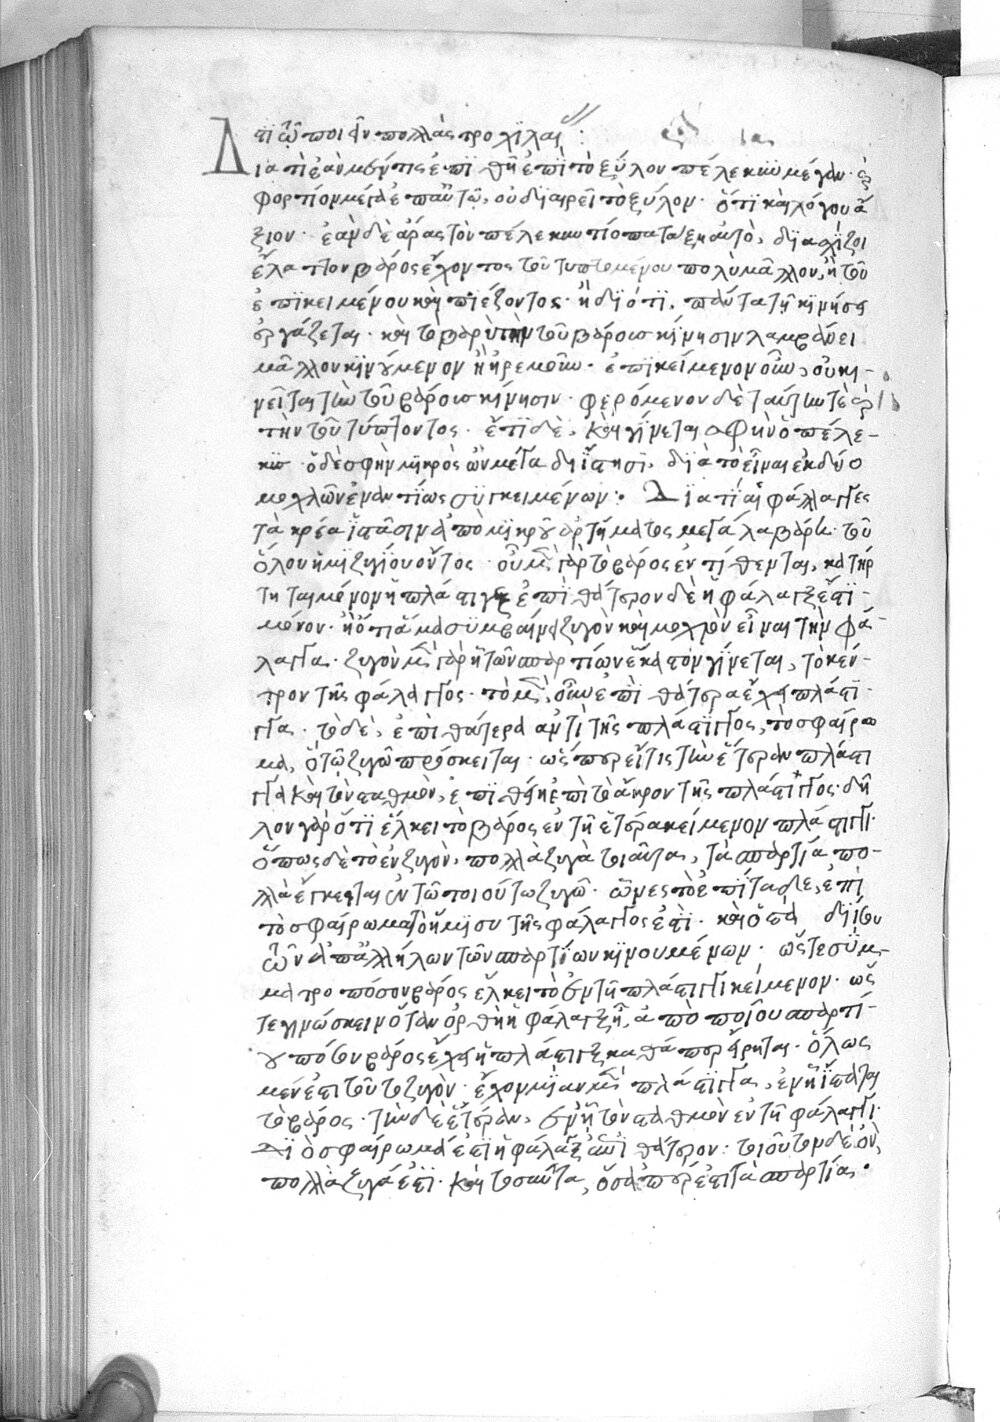 τϊ ὧ ποιεῖν πολλὰς τροχϊλαι :
Διατὶ ἐὰν μέν τις ἐπιθῆ ἐπὶ τὸ ξύλον πέλεκυν μέγαν. καὶ
φορτίον μέγα ἐπ' αὐτῶ, οὐ διαιρεῖ τὸ ξύλον. ὅτι καὶ λόγου ἄ
ξιον. ἐὰν δὲ ἄρας τὸν πέλεκυν τίς πατάξη αὐτὸ, διασχίζει
ἔλαττον βάρος ἔχοντος τοῦ τυπτομένου πολὺ μᾶλλον, ἢ τοῦ
ἐπικειμένου καὶ πιέζοντος. ἢ διότι, πάντα τῆ κινήσει
ἐργάζεται. καὶ τὸ βαρὺ τὴν τοῦ βάρους κίνησιν λαμβάνει
μᾶλλον κινούμενον ἢ ἠρεμοῦν. ἐπικείμενον οὖν, οὐ κι-
νεῖται τὴν τοῦ βάρους κίνησιν. φερόμενον δὲ ταύτην τὲ καὶ
τὴν τοῦ τύπτοντος. ἔτι δὲ, καὶ γίνεται ὁ σφὴν ὁ πέλε-
κυς. ὁ δὲ σφὴν μικρὸς ὢν μεγάλα διΐστησι, διὰ τὸ εἶναι ἐκ δύο
μοχλῶν ἐναντίως συγκειμένων. Διατί αἱ φάλαγγες
τὰ κρέα ἱστᾶσιν ἀπὸ μικροῦ ἀρτήματος μεγάλα βάρη. τοῦ
ὅλου ἡμιζυγίου ὄντος. οὗ μὲν γὰρ τὸ βάρος ἐντίθεται, κατήρ
τηται μόνον ἡ πλάστιγξ ἐπὶ θάτερον δὲ ἡ φάλαγξ ἐστὶ
μόνον. ἢ ὅτι ἅμα συμβαίνει ζυγὸν καὶ μοχλὸν εἶναι τὴν φά-
λαγγα. ζυγὸν μὲν γὰρ ἢ τῶν σπαρτίων ἕκαστον γίνεται, τὸ κέν-
τρον τῆς φάλαγγος. τὸ μὲν οὖν ἐπὶ θάτερα ἔχει πλάστι-
γγα. τὸ δὲ, ἐπὶ θάτερα ἀντὶ τῆς πλάστιγγος, τὸ σφαίρω
μα, ὃ τῶ ζυγῶ πρόσκειται. ὥσπερ εἴ τις τὴν ἑτέραν πλάστι
γγα καὶ τὸν σταθμὸν, ἐπιθείη ἐπὶ τὸ ἄκρον τῆς πλάστιγγος. δῆ
λον γὰρ ὅτι ἕλκει τὸ βάρος ἐν τῆ ἑτέρα κείμενον πλάστιγγι.
ὅπως δὲ τὸ ἓν ζυγὸν, πολλὰ ζυγὰ τοιαῦτα, τὰ σπαρτία πο-
λλὰ ἔγκειται ἐν τῶ τοιούτω ζυγῶ. ὧν ἑκάστου τὸ ἐπὶ τάδε, ἐπὶ
τὸ σφαίρωμα τὸ ἥμισυ τῆς φάλαγγος ἐστὶ. καὶ ὁ σταθμὸς δι' ἴσου
ὧν ἀπ' ἀλλήλων τῶν σπαρτίων κινουμένων. ὥστε συμ-
μετρο πόσον βάρος ἕλκει τὸ ἐν τῆ πλάστιγγι κείμενον. ὥσ
τε γινώσκειν ὅταν ὀρθὴ ἡ φάλαγξ ἦ, ἀπὸ ποίου σπαρτί-
ου πόσον βάρος ἔχει ἡ πλάστιγξ καθάπερ εἴρηται. ὅλως
μέν ἐστι τοῦτο ζυγὸν. ἔχον μίαν μὲν πλάστιγγα, ἐν ἧ ἵσταται
τὸ βάρος. τὴν δὲ ἑτέραν, ἐν ἧ τὸ σταθμὸν ἐν τῆ φάλαγγι.
διὸ σφαίρωμά ἐστι ἡ φάλαγξ ἐπὶ θάτερον. τοιοῦτον δὲ ὂν,
πολλὰ ζυγά ἐστι. καὶ τοσαῦτα, ὅσα πέρ ἐστι τὰ σπαρτία.